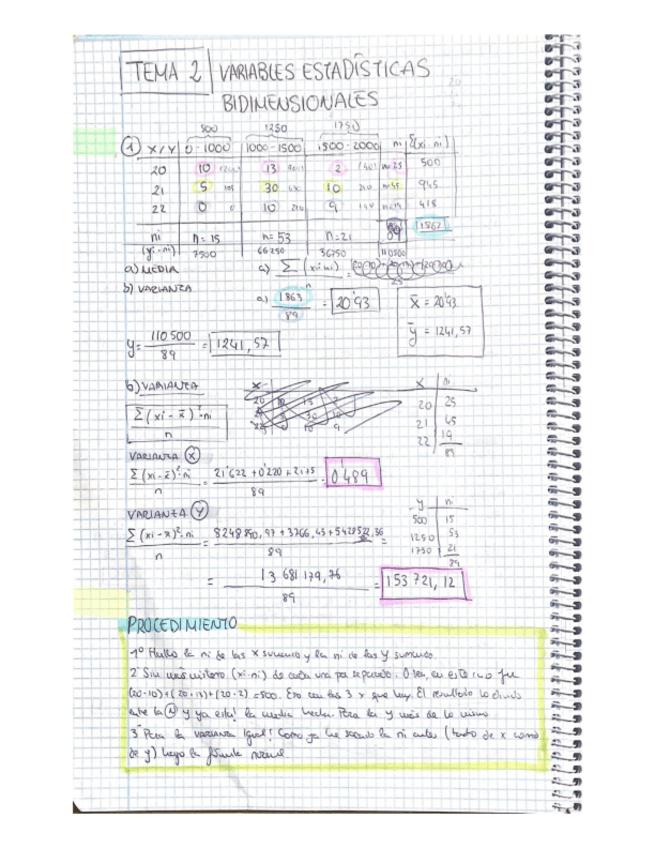 TEMA 2 VARIABLES ESTADÍSTICAS
BIDIMENSIONALES
500 1250 1750
① X/Y 0-1000 1000-1500 1500-2000 ni Σ(xi·ni)
20 10 13 2 n=25 500
21 5 30 10 945
22 0 0 10 9 418
ni n=15 n=53 n=21 89
(yi·ni) 7500 66250 36750 110500
a) MEDIA
b) VARIANZA
a) 1863 / 89 = 20'93
x̄ = 20'93
ȳ = 1241,57
y = 110500 / 89 = 1241,57
b) VARIANZA
Σ(xi - x̄)²·ni / n
X n
20 25
21 45
22 19
89
VARIANZA Ⓧ
Σ(xi - x̄)²·ni / n = / 89 = 0'489
VARIANZA Ⓨ
Σ(xi - x̄)²·ni / n = / 89 =
Y n
500 15
1250 53
1750 21
89
= 13 681 179,76 / 89 = 153 721,12
PROCEDIMIENTO
1º Hallo la ni de las x sumando y la ni de las y sumando.
2º (xi·ni) de cada una por separado. O sea, en este caso fue
(20·10)+(20·13)+(20·2) = 500. Eso con las 3 x que hay. El resultado lo divido
entre la Ⓝ y ya está! la media hecha. Para la y más de lo mismo
3º Para la varianza igual! Como ya he sacado la ni antes (tanto de x como
de y) hago la fórmula normal.